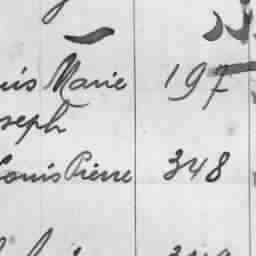 uis Marie 197
seph
Louis Pierre 348